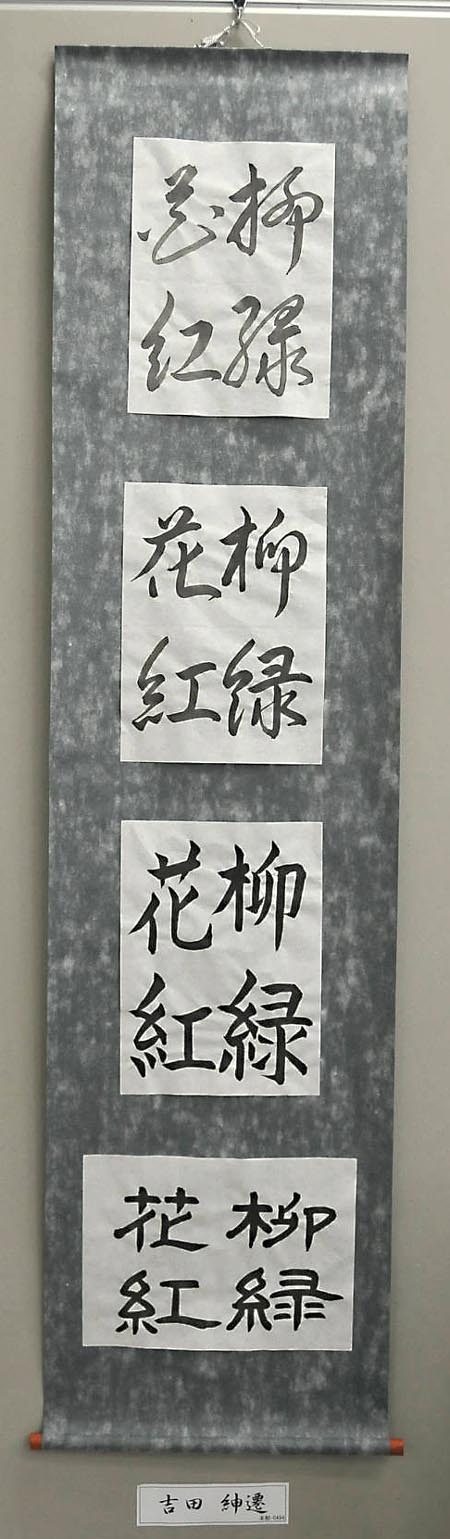 柳緑
花紅
柳緑
花紅
柳緑
花紅
柳緑
花紅
吉田 紳遷